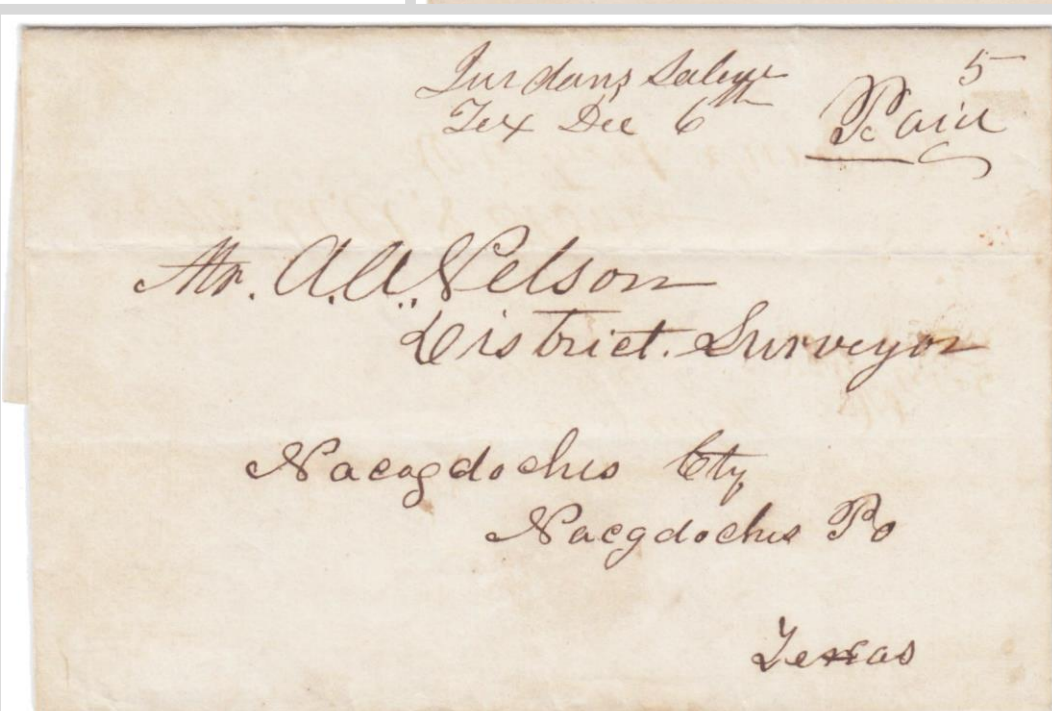 Jurdans Saline
Tex Dec 6th
5
Paid
Mr. A.A. Nelson
District. Surveyor
Nacogdoches Cty
Nacgdoches Po
Texas